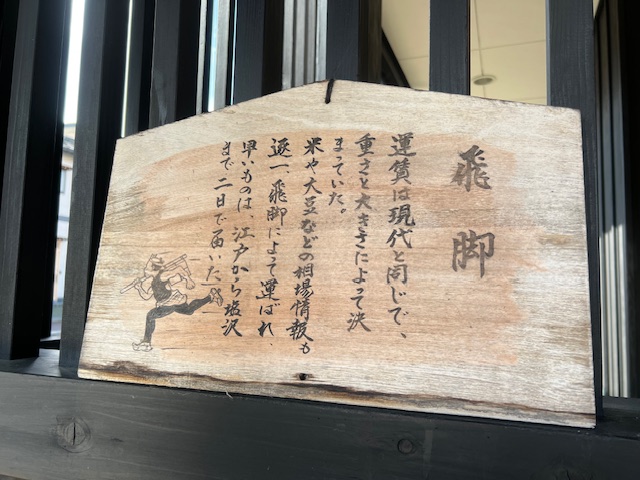 飛脚
運賃は現代と同じで、
重さと大きさによって決
まっていた。
米や大豆などの相場情報も
逐一、飛脚によって運ばれ、
早いものは、江戸から塩沢
まで二日で届いた。